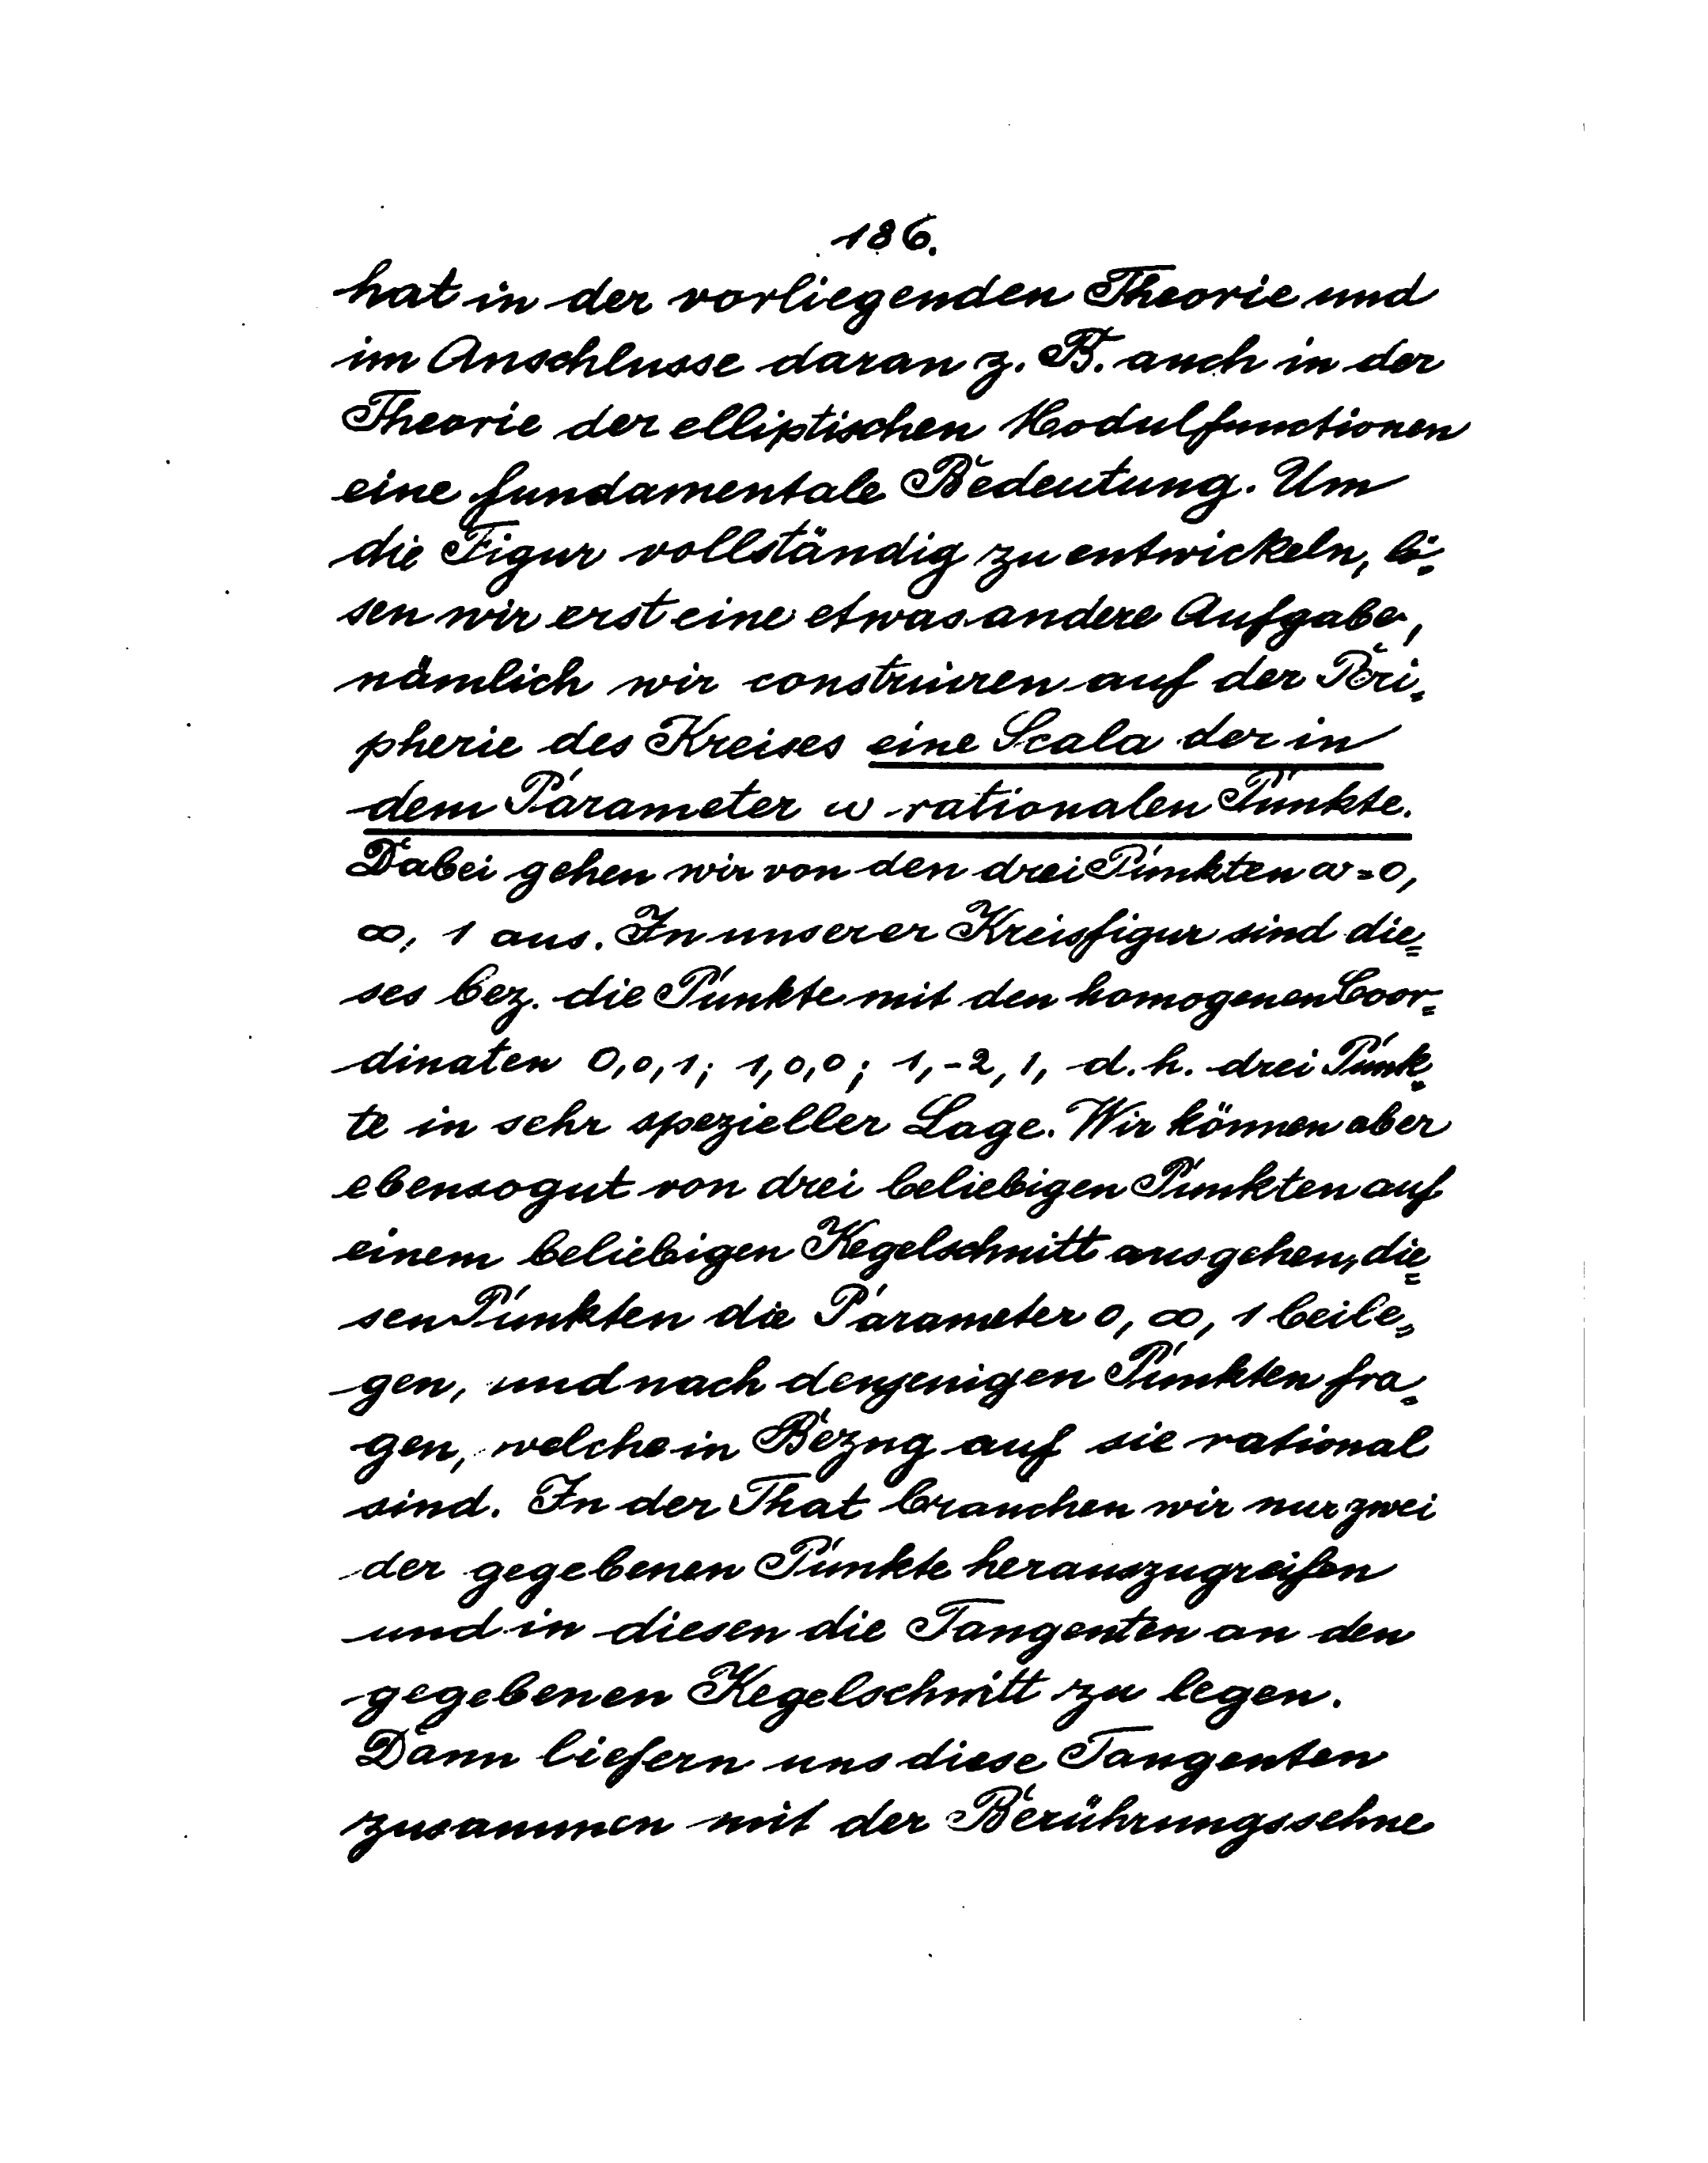 186.
hat in der vorliegenden Theorie und
im Anschlusse daran z. B. auch in der
Theorie der elliptischen Modulfunctionen
eine fundamentale Bedeutung. Um
die Figur vollständig zu entwickeln, lö-
sen wir erst eine etwas andere Aufgabe,
nämlich wir construiren auf der Peri-
pherie des Kreises eine Scala der in
dem Parameter ω rationalen Punkte.
Dabei gehen wir von den drei Punkten ω=0,
∞, 1 aus. In unserer Kreisfigur sind die=
ses bez. die Punkte mit den homogenen Coor=
dinaten 0,0,1; 1,0,0; 1,-2,1, d. h. drei Punk=
te in sehr spezieller Lage. Wir können aber
ebensogut von drei beliebigen Punkten auf
einem beliebigen Kegelschnitt ausgehen, die=
sen Punkten die Parameter 0, ∞, 1 beile=
gen, und nach denjenigen Punkten fra=
gen, welche in Bezug auf sie rational
sind. In der That brauchen wir nur zwei
der gegebenen Punkte herauszugreifen
und in diesen die Tangenten an den
gegebenen Kegelschnitt zu legen.
Dann liefern uns diese Tangenten
zusammen mit der Berührungssehne